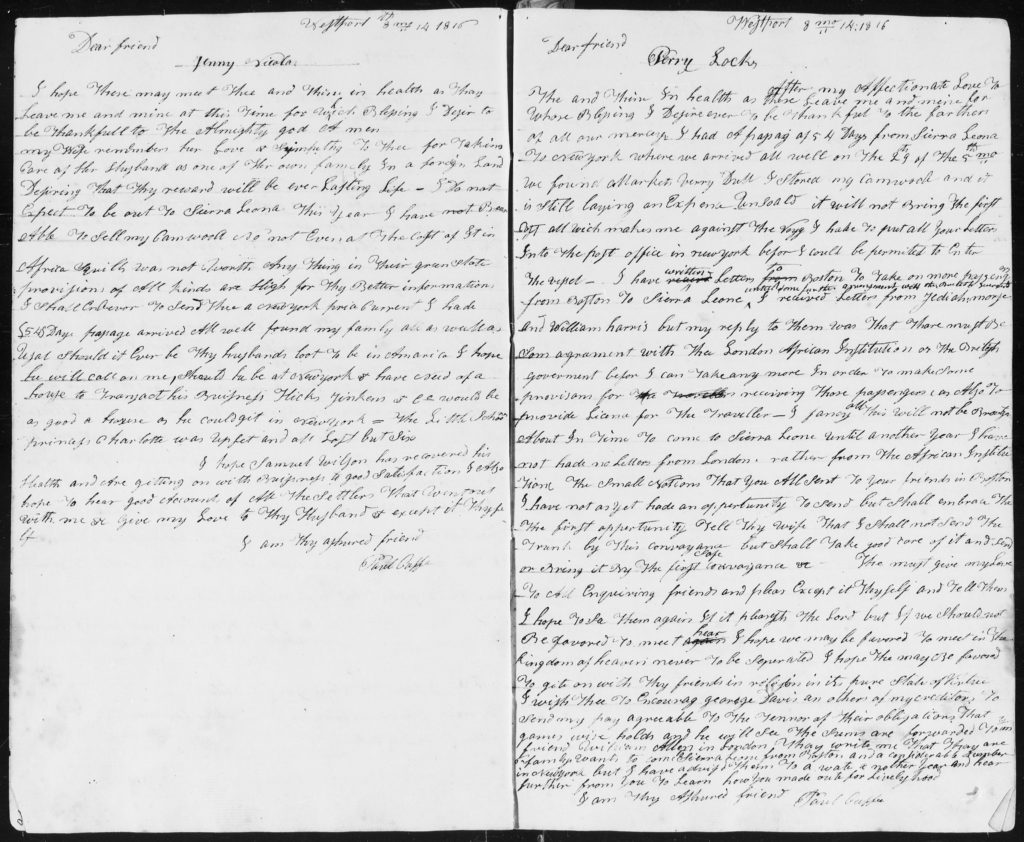 Westport 8th mo 14 1816
Dear friend
Jenny Nicola
I hope These may meet Thee and Thine in health as They
Leave me and mine at this Time for Wich Blessing I Desir to
be thankfull to The Almighty god A men
my Wife remembers her Love & Simpathy To Thee for Takeing
Care of her Husband as one of Thr own family In a foreign Land
Desiring That Thy reward will be ever Lasting Life - I Do not
Expect To be out To Sierra Leona This Year I have not Been
Able To Sell my Camwood No not Even at The Cost of It in
Africa Quills was not Worth Any Thing in Their green State
provisions of All Kinds are High for Thy Better informations
I Shall Endever To Send Thee a Newyork price Current I had a
54 Days passage arrived All well found my family all as well as
Usal Should it Ever be Thy husbands loot To be in America I hope
he will Call on me, Should he be at Newyork & have need of a
house to Transact his Buisness Hicks Jenkens & Co would be
as good a house as he could git in Newyork = The Little Schooner
prinsess Charlotte was Upset and all Lost but Six
I hope Samuel Wilson has recovered his
Health and Are getting on with Buisness to good Satisfaction I Also
hope To hear good Account of All The Settlers That Went out
with me & Give my Love to Thy Husband & except it Thy se
lf
I am thy assured friend
Paul Cuffe
Westport 8 mo 14 1816
Dear friend
Perry Locks
After my Affectionate Love To
The and Thine In health as these Leave me and mine for
Whose Blessing I Desire ever To be Thankful To the farther
of all our mercies I had A passag of 54 Days from Sierra Leona
To Newyork where we arrived all well on The 29th of The 5th mo
We found Markets Verry Dull I Stored my Camwood and it
is Still laying an Expence Unsoald it will not Bring the first
Cost all wich makes me against the Voyg I hade To put all your Letters
Into the post office in newyork befor I could be permited to Enter
The vessel - I have written Letters to Boston To Take on more passengers
from Boston To Sierra Leone, I recived Letters from Jedidiah morse
and William harris but my reply to Them was That Thare must Be
Som agrament with Thee London African Institution or The British
Goverment befor I can Take any more In order To make Some
provisans for receiving Those passengers as Also To
provide Licence for The Traveller - I fancy all This will not be Brought
About In Time To come to Sierra Leone Until another Year I have
not hade no Letters from London. rather from The African Institu
tion The Small Notions That You All Sent To Your friends in Boston
I have not as yet hade an oppertunity To Send but Shall embrace The
The first oppertunity Tell Thy wife That I Shall not Send The
Trunk by This convayance but Shall Take good care of it and Send
or Bring it By The first Safe Convayance & The must give my Love
To All Enquiring friends and pleas Except it Thyself and Tell Them
I hope To Se Them again If it pleaseth The Lord but If we Should not
Be favored To meet hear I hope we may be favored To meet in The
Kingdom of heaven never To be Seperated I hope The may Be favored
To gite on with Thy friends in religion in its pure State of Virtue
I wish Thee To Encourag george Davis an others of my creditors To
Send my pay agreeable To The Tennor of Their obligations That
games wise holds and he will See The Sums are forwarded To my
friend William Allen in London, Thay write me That Thay are
familys wants to com Sierra Leone from Boston and a considerable number
in Newyork but I have advised Them To a wate a nother year and hear
further from You To Learn how You made out for Livelyhood
I am Thy Assured friend Paul Cuffe